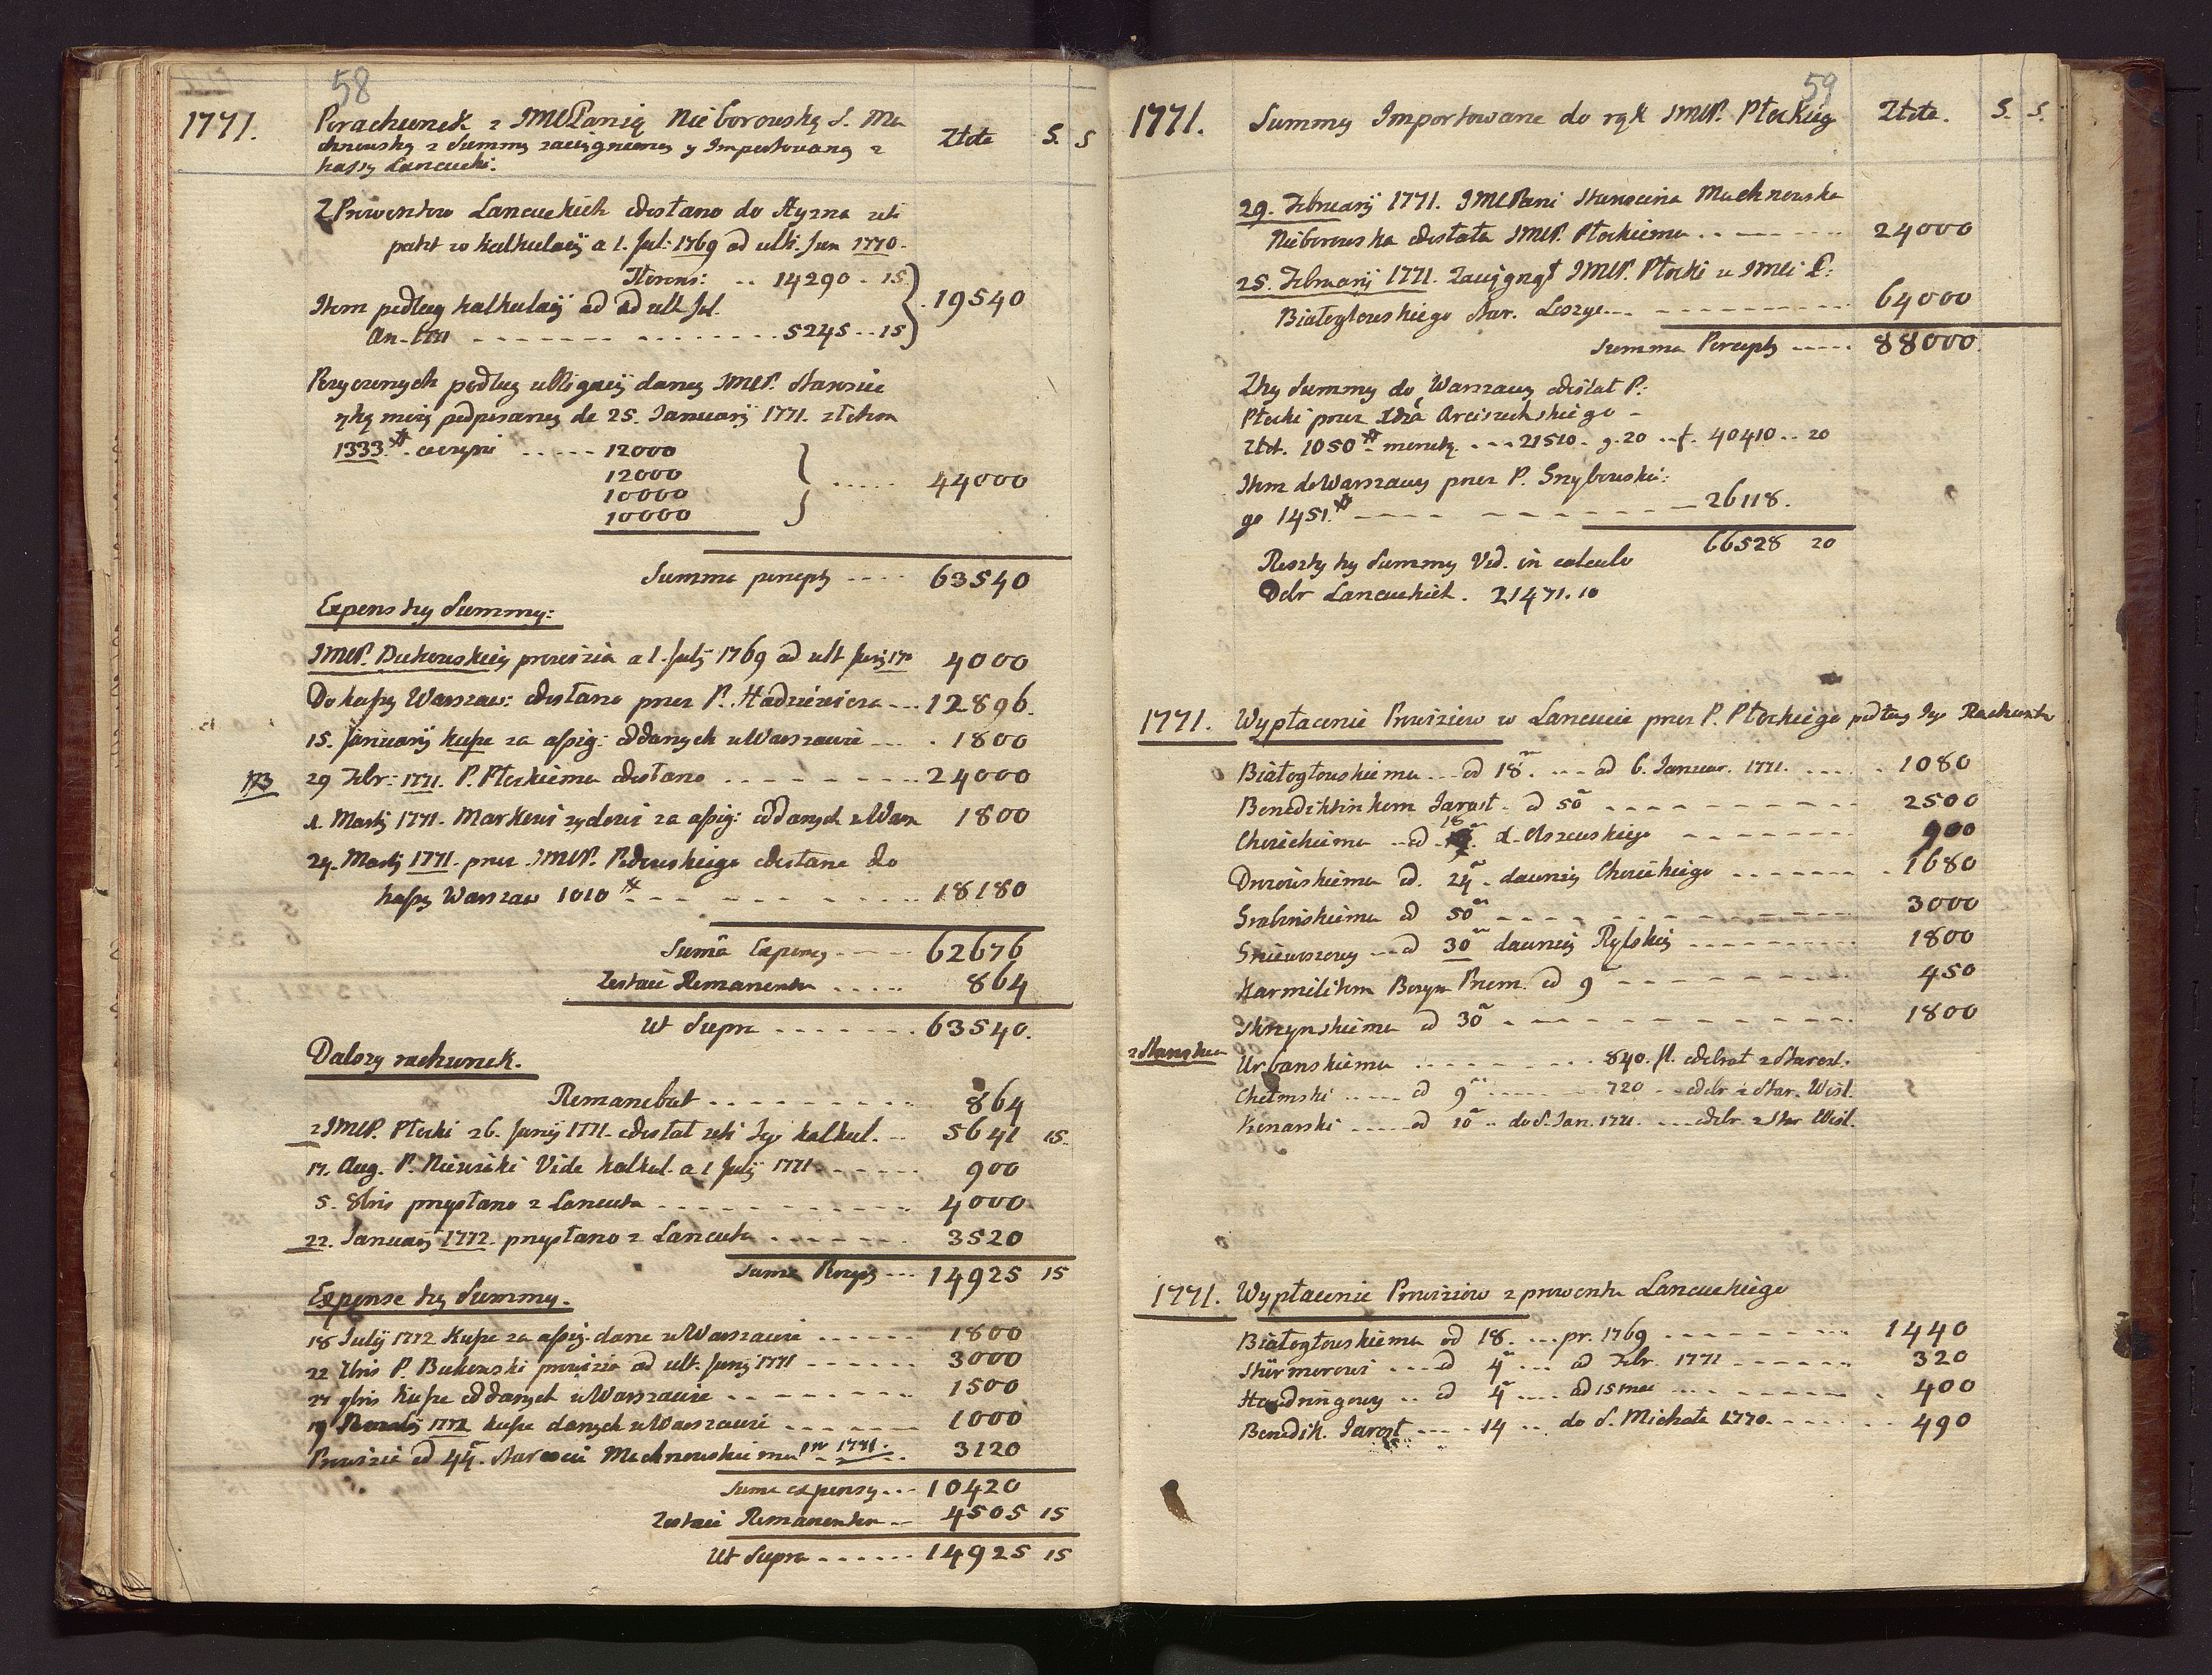 58
1771. Porachunek z JMCPanią Nieborowską S. Ma
chnowską z Summy zaciągnioney y Importowaney z
kassy Lancucki: Złote S. S
Z Prowentow Lancuckich odesłano do
patet w kalkulacij a 1. Jul: 1769 ad ulti. Jun 1770.
14290 . 15
Item podług kalkulacij ad ult Jul.
An. 1771 5245 .. 15 } 19540
Pozyczonych podług obligacij daney JMCP. Staroscie
ręką moią podpisaney de 25. Januarij 1771.
1333 12000
12000 } 44000
10000
10000
Summa percepty 63540
Expens tey Summy:
JMCP. Bukowskiey prowizia a 1. Julij 1769 ad ult Junij 170 4000
Do kassy Warszaw: odesłano przez P. 12896.
15. Januarij kupe za assig: oddanych w Warszawie . 1800
173 29 Febr: 1771. P. Płockiemu odesłano 24000
1. Martij 1771. Markowi zydowi za assig: oddanych w Warsz 1800
24. Martij 1771. przez JMCP. odesłane do
kassy Warszaw 1010 18180
Sumā Expensy 62676
Zostaie Remanentu 864
Ut Supra 63540.
Dalszy rachunek.
Remanebat 864
z JMCP. Płocki 26. Junij 1771. odesłał Jego kalkul. 5641 15.
17. Aug. P. Vide kalkul. a 1 Julij 1771 900
5. 8bris przysłano z Lancuta 4000
22. Januarij 1772. przysłano z Lancuta 3520
Suma 14925 15
Expense tey Summy.
18 Julij 1772 Kupe za assig. dane w Warszawie 1800
22 P. Bukowski prowizia ad ult. Junij 1771 3000
9bris kupe oddanych w Warszawie 1500
19 1772 kupe danych w Warszawie 1000
Prowizii od 44. Staroscie Machnowskiemu pr 1771. 3120
Suma expensy 10420
Zostaie Remanentu 4505 15
Ut Supra 14925 15
59
1771. Summy Importowane do rąk JMCP. Płockieg Złote. S. S.
29. Februarij 1771. JMCPani Starościna Machnowska
Nieborowska odesłała JMCP. Płockiemu 24000
25. Februarij 1771. Zaciągnął JMCP. Płocki u JMCi P:
Białogłowskiego Star. 64000
Summa Percepty 88000.
Z tey Summy do Warszawy odesłał P:
Płocki przez Arciszewskiego
Złot. 1050 monetą 21510 . g. 20 .. f. 40410 .. 20
Item do Warszawy przez P. Grzybowski:
go 1451. 26118.
66528 20
Reszty tey Summy Vid. in calculo
Dobr Lancuckich. 21471. 10
1771. Wypłacenie Prowiziow w Lancucie przez P. Płockiego podług Jego Rachunku
Białogłowskiemu od 18. ad 6. Januar. 1771. 1080
Benediktinkom Jarosł. od 50 2500
od 18 900
od. 24. dawniey 1680
Grabinskiemu od 50 3000
od 30 dawniey Rylskiey 1800
Karmelitom Przem. od 9 450
Skrzynskiemu od 30 1800
Urbanskiemu 840. fl. odebrał z Starost.
Chełmski od 9 720 odebr z Star. Wisl.
Konarski od 10 do S. Jan. 1771. odebr z Star Wisl.
1771. Wypłacenie Prowiziow z prowentu Lancuckiego
Białogłowskiemu od 18. pr. 1769 1440
Stürmerowi od 4 ad Febr. 1771 320
od 4 ad 15 Mai 400
Benedik. Jarosł 14 do S. Michała 1770. 490